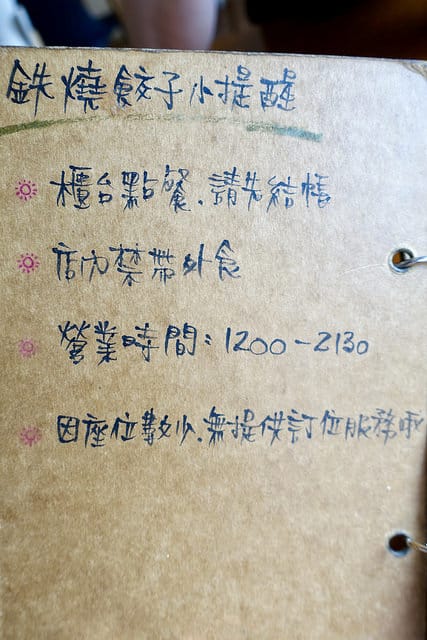 鉄燒餃子小提醒
櫃台點餐.請先結帳
店內禁帶外食
營業時間:1200-2130
因座位數少.無提供訂位服務哦